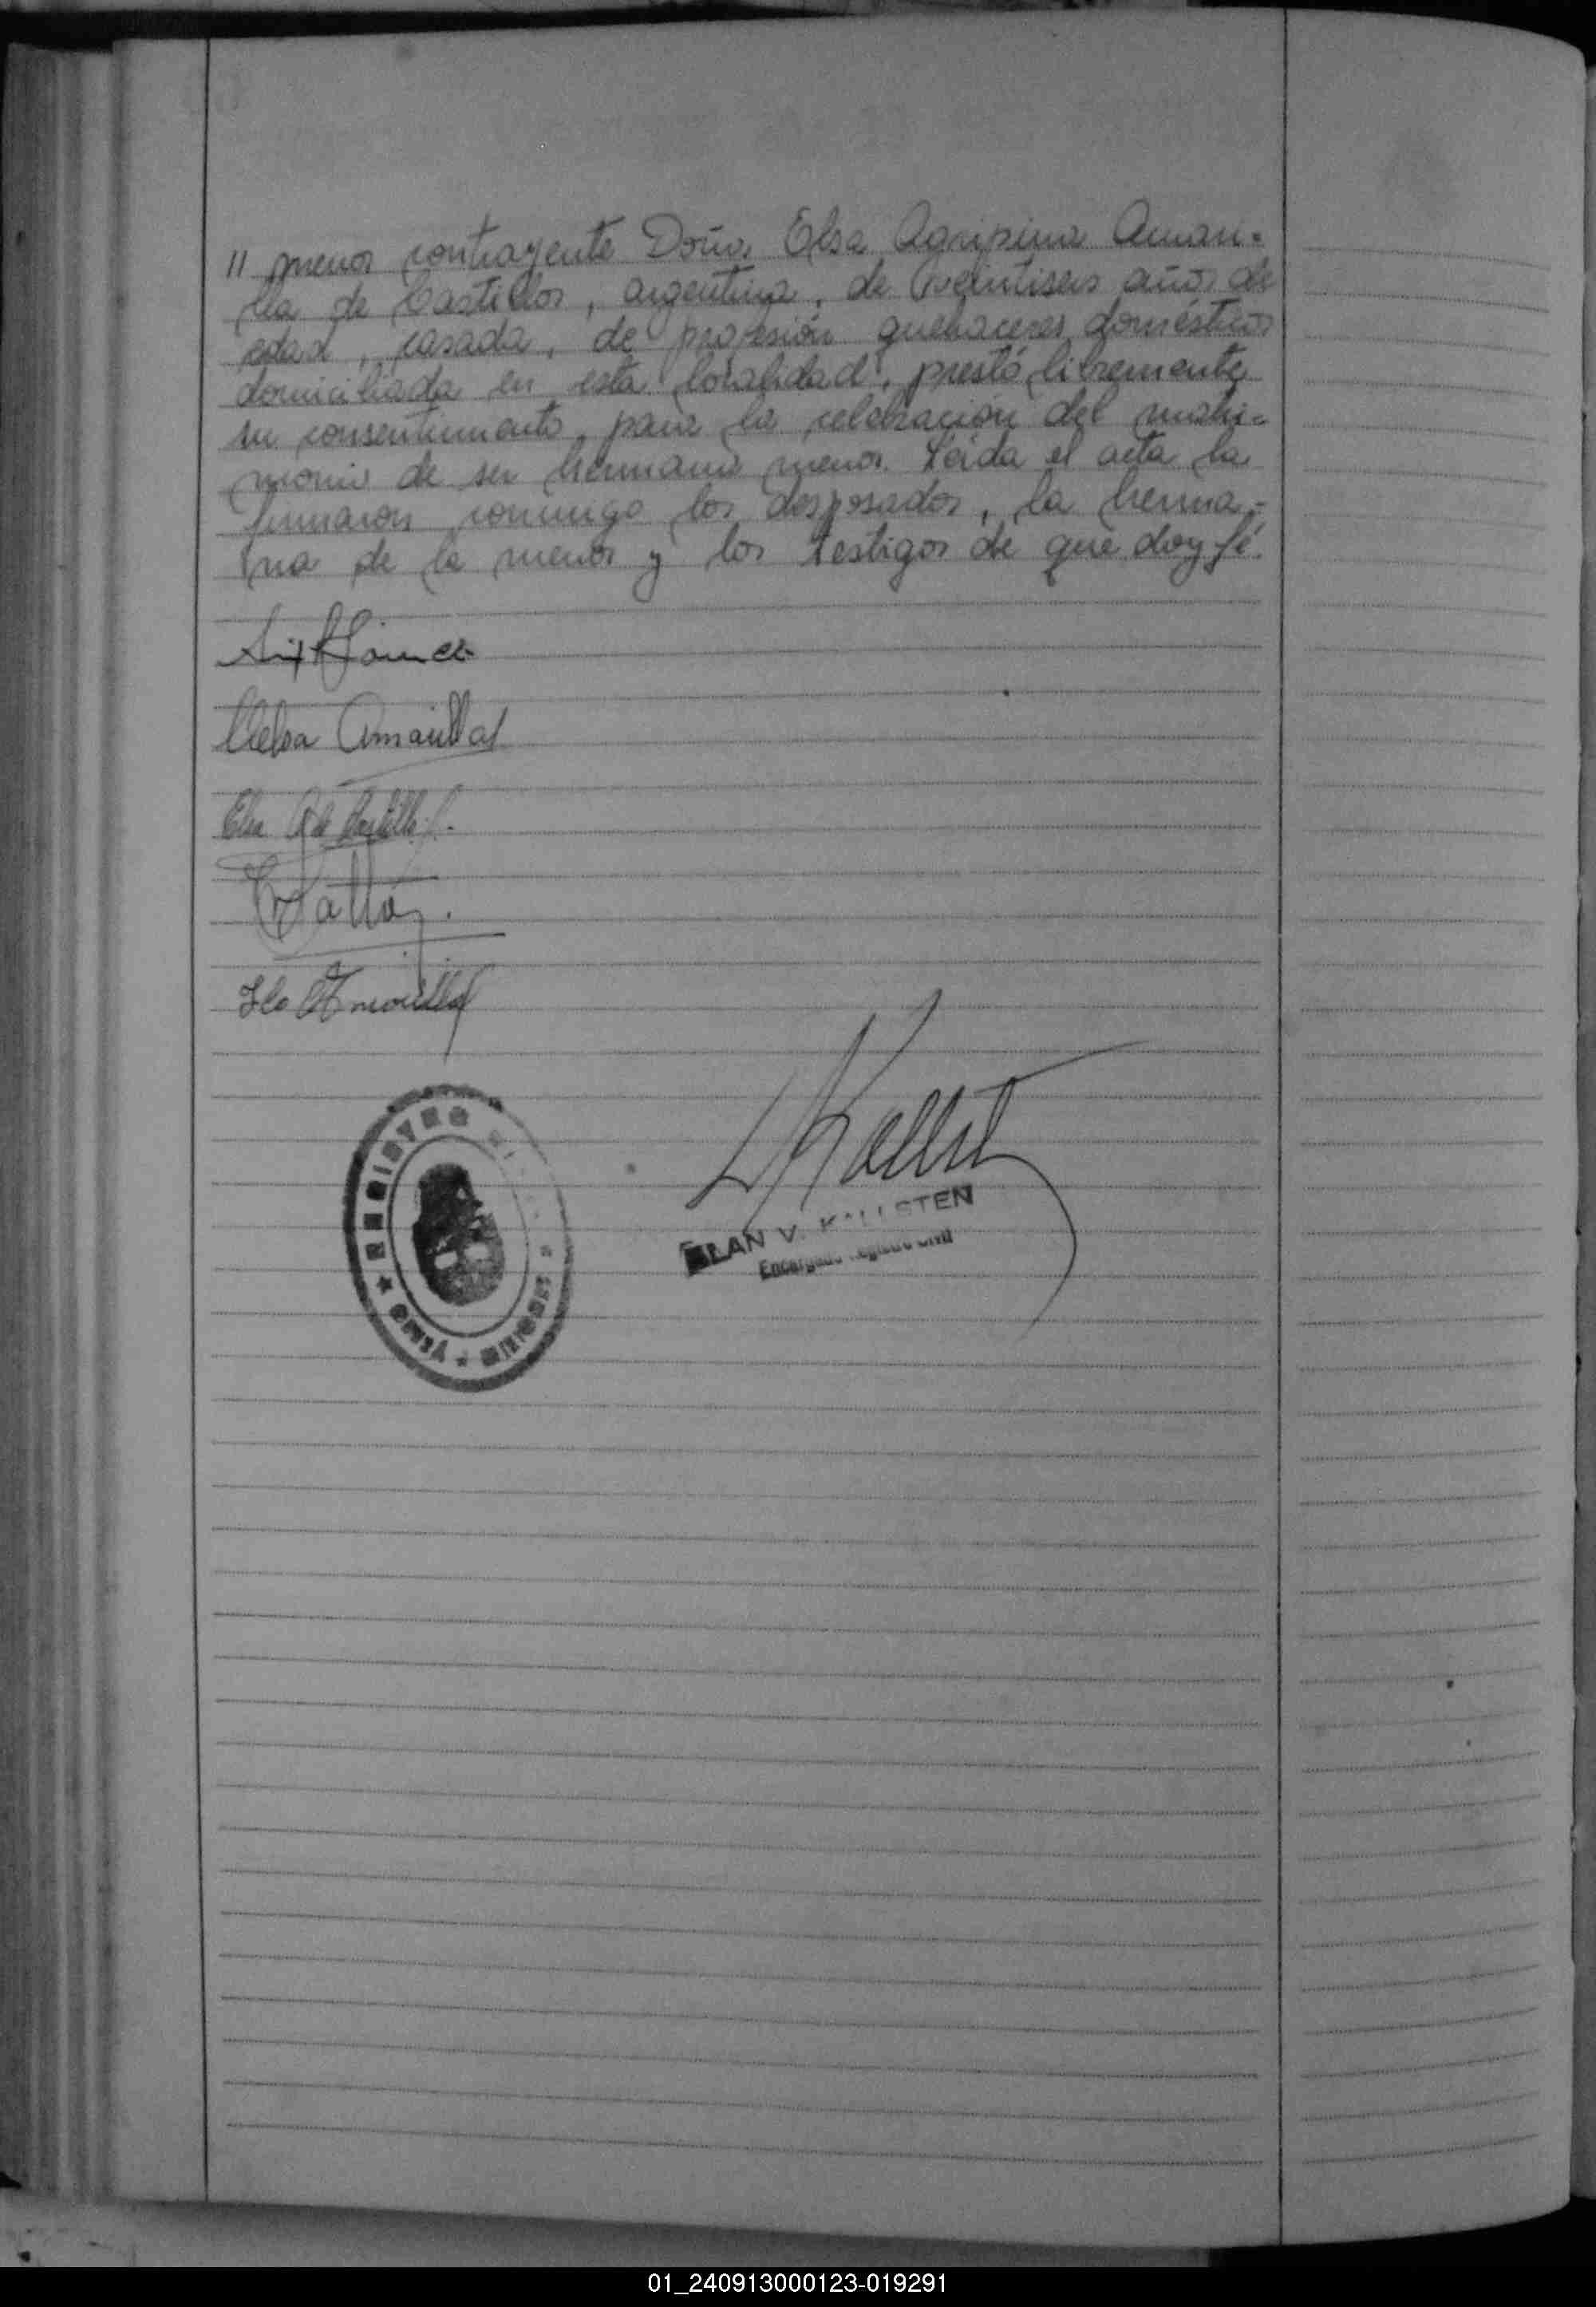 " menor contrayente Doña Elsa Agripina Amari-
lla de Castillos, argentina, de veintiseis años de
edad, casada, de profesión quehaceres domésticos
domiciliada en esta localidad, prestó libremente
su consentimiento para la celebración del matri-
monio de su hermana menor. Leida el acta la
firmaron conmigo los desposados, la herma-
na de la menor y los testigos de que doy fé.
Amarilla
Elsa A de Castillo
Amarilla
REGISTRO
V. KALLSTEN
Encargado Registro Civil
01_240913000123-019291